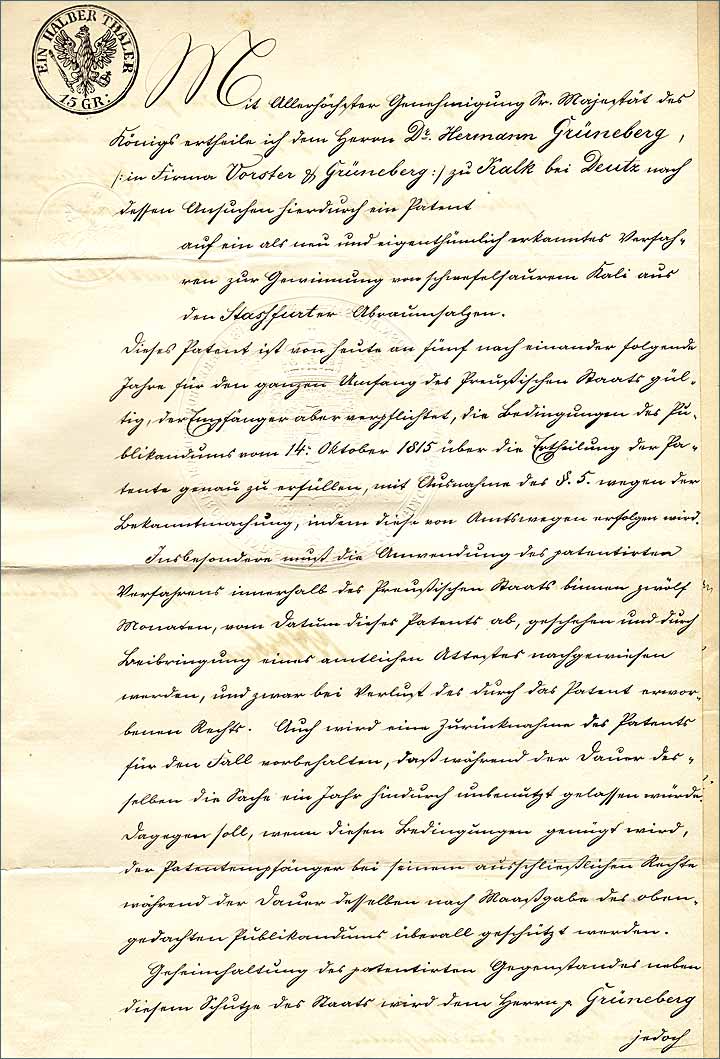 EIN HALBER THALER
15 GR:
Mit Allerhöchster Genehmigung Sr. Majestät des
Königs ertheile ich dem Herrn Dr. Hermann Grüneberg,
/: in Firma Vorster & Grüneberg :/ zu Kalk bei Deutz nach
dessen Ansuchen hierdurch ein Patent
auf ein als neu und eigenthümlich erkanntes Verfah-
ren zur Gewinnung von schwefelsaurem Kali aus
den Stassfurter Abraumsalzen.
Dieses Patent ist von heute an fünf nach einander folgende
Jahre für den ganzen Umfang des Preußischen Staats gül-
tig, der Empfänger aber verpflichtet, die Bedingungen des Pu-
blikandums vom 14. Oktober 1815 über die Ertheilung der Pa-
tente genau zu erfüllen, mit Ausnahme des §. 5. wegen der
Bekanntmachung, indem diese von Amtswegen erfolgen wird.
Insbesondere muß die Anwendung des patentirten
Verfahrens innerhalb des Preußischen Staats binnen zwölf
Monaten, vom Datum dieses Patents ab, geschehen und durch
Beibringung eines amtlichen Attestes nachgewiesen
werden, und zwar bei Verlust des durch das Patent erwor-
benen Rechts. Auch wird eine Zurücknahme des Patents
für den Fall vorbehalten, daß während der Dauer des-
selben die Sache ein Jahr hindurch unbenutzt gelassen würde.
Dagegen soll, wenn diesen Bedingungen genügt wird,
der Patentempfänger bei seinem ausschließlichen Rechte
während der Dauer desselben nach Maaßgabe des oben-
gedachten Publikandums überall geschützt werden.
Geheimhaltung des patentirten Gegenstandes neben
diesem Schutze des Staats wird dem Herrn p. Grüneberg
jedoch